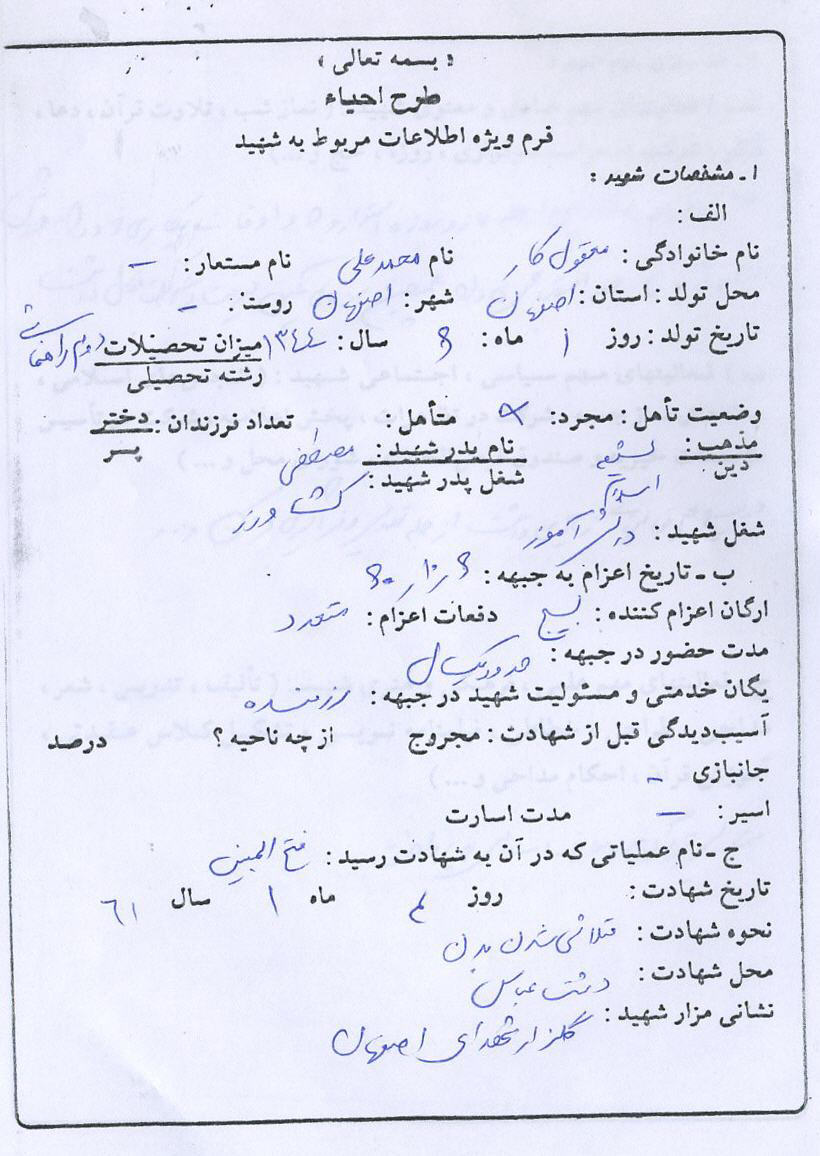 « بسمه تعالی »
طرح احیاء
فرم ویژه اطلاعات مربوط به شهید
۱ـ مشخصات شهید :
الف :
نام خانوادگی : معقول کا نام محمد علی نام مستعار : –
محل تولد : استان : اصفهان شهر : اصفهان روستا : –
تاریخ تولد : روز ۱ ماه : ۶ سال : ۱۳۴۴ میزان تحصیلات دوم راهنمائی
رشته تحصیلی
وضعیت تأهل : مجرد : متأهل : تعداد فرزندان : دختر
پسر
مذهب : شیعه نام پدر شهید : مصطفی
دین اسلام شغل پدر شهید : کشاورز
شغل شهید : دانش آموز
ب ـ تاریخ اعزام به جبهه :
ارگان اعزام کننده : بسیج دفعات اعزام : متعدد
مدت حضور در جبهه : حدود یکسال
یگان خدمتی و مسئولیت شهید در جبهه : رزمنده
آسیب‌دیدگی قبل از شهادت : مجروح از چه ناحیه ؟ درصد
جانبازی –
اسیر : – مدت اسارت
ج ـ نام عملیاتی که در آن به شهادت رسید : فتح المبین
تاریخ شهادت : روز ماه ۱ سال ۶۱
نحوه شهادت : متلاشی شدن بدن
محل شهادت : دشت عباس
نشانی مزار شهید :
گلزار شهدای اصفهان